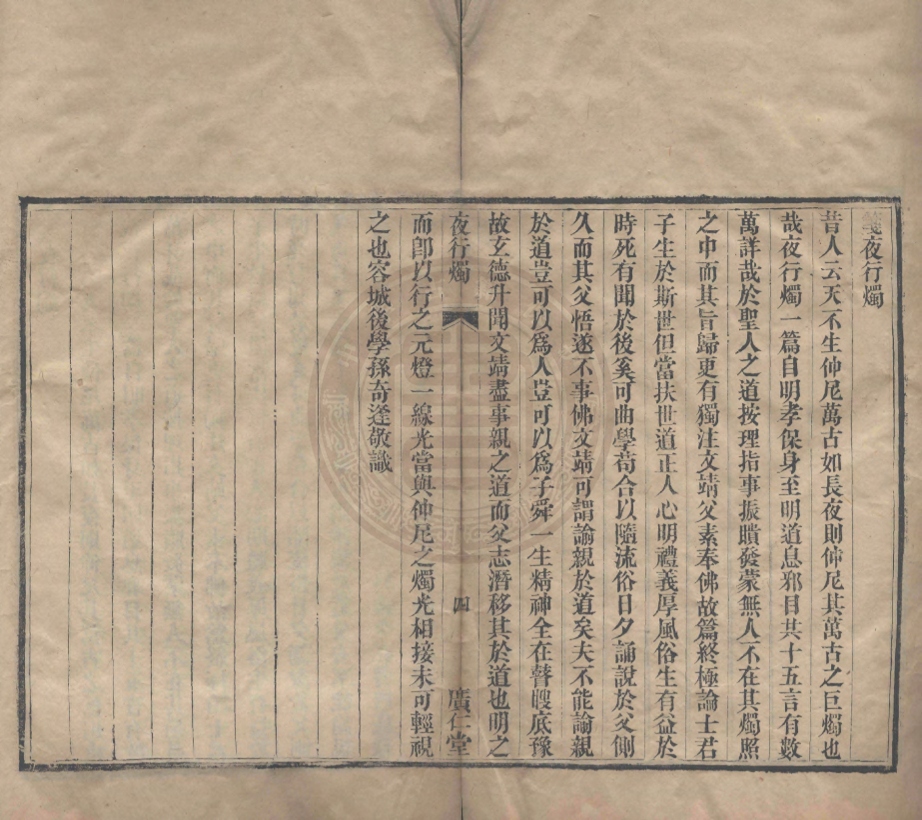 夜行燭
昔人云天不生仲尼萬古如長夜則仲尼其萬古之巨燭也
哉夜行燭一篇自明孝保身至明道息邪目共十五言有數
萬詳哉於聖人之道按理指事振聵發蒙無人不在其燭照
之中而其旨歸更有獨注文靖父素奉佛故篇終極論士君
子生於斯世但當扶世道正人心明禮義厚風俗生有益於
時死有聞於後奚可曲學苟合以隨流俗日夕誦說於父側
久而其父悟遂不事佛文靖可謂諭親於道矣夫不能諭親
於道豈可以爲人豈可以爲子舜一生精神全在瞽瞍底豫
故玄德升聞文靖盡事親之道而父志潛移其於道也明之
夜行燭 四 廣仁堂
而卽以行之元燈一線光當與仲尼之燭光相接未可輕視
之也容城後學孫奇逢敬識